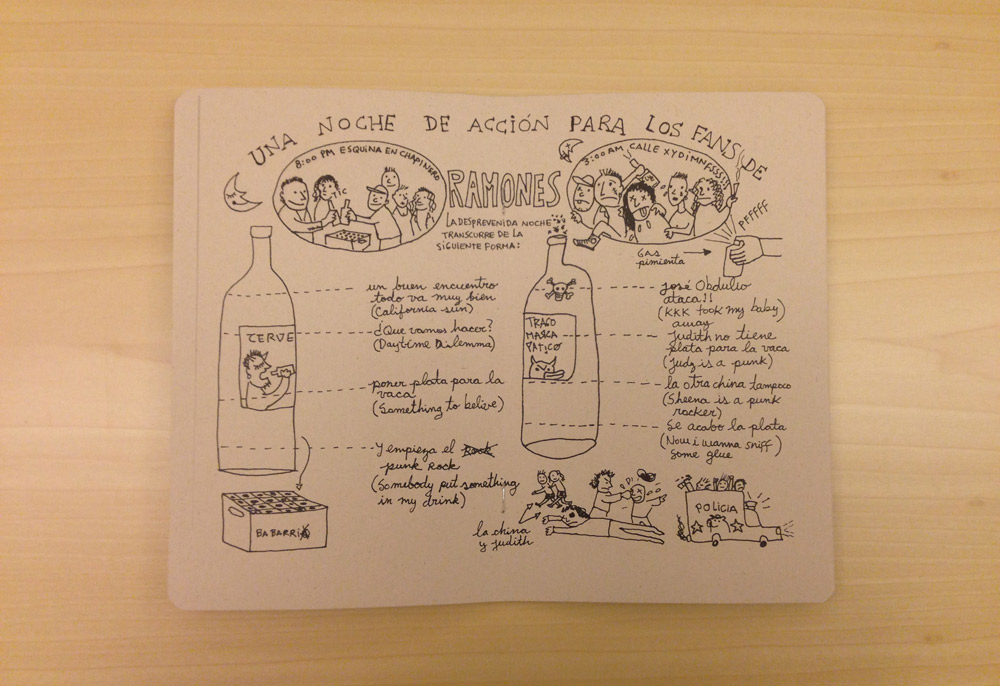 UNA NOCHE DE ACCIÓN PARA LOS FANS DE
RAMONES
LA DESPREVENIDA NOCHE
TRANSCURRE DE LA
SIGUIENTE FORMA:
8:00 PM ESQUINA EN CHAPINERO
TIC
un buen encuentro
todo va muy bien
(California sun)
¿Que vamos hacer?
(Daytime Dilemma)
poner plata para la
vaca
(Something to belive)
Y empieza el Rock
punk Rock
(Somebody put something
in my drink)
CERVE
BABARRIA
3:00 AM CALLE XYDIMNFSSSSS
PFFFFF
GAS
pimienta
José Obdulio
ataca!!
(KKK took my baby)
away
Judith no tiene
plata para la vaca
(Judy is a punk)
la otra china tampoco
(Sheena is a punk
rocker)
Se acabo la plata
(Now i wanna sniff)
some glue
TRAGO
MARCA
PATICO
la china
y judith
POLICIA